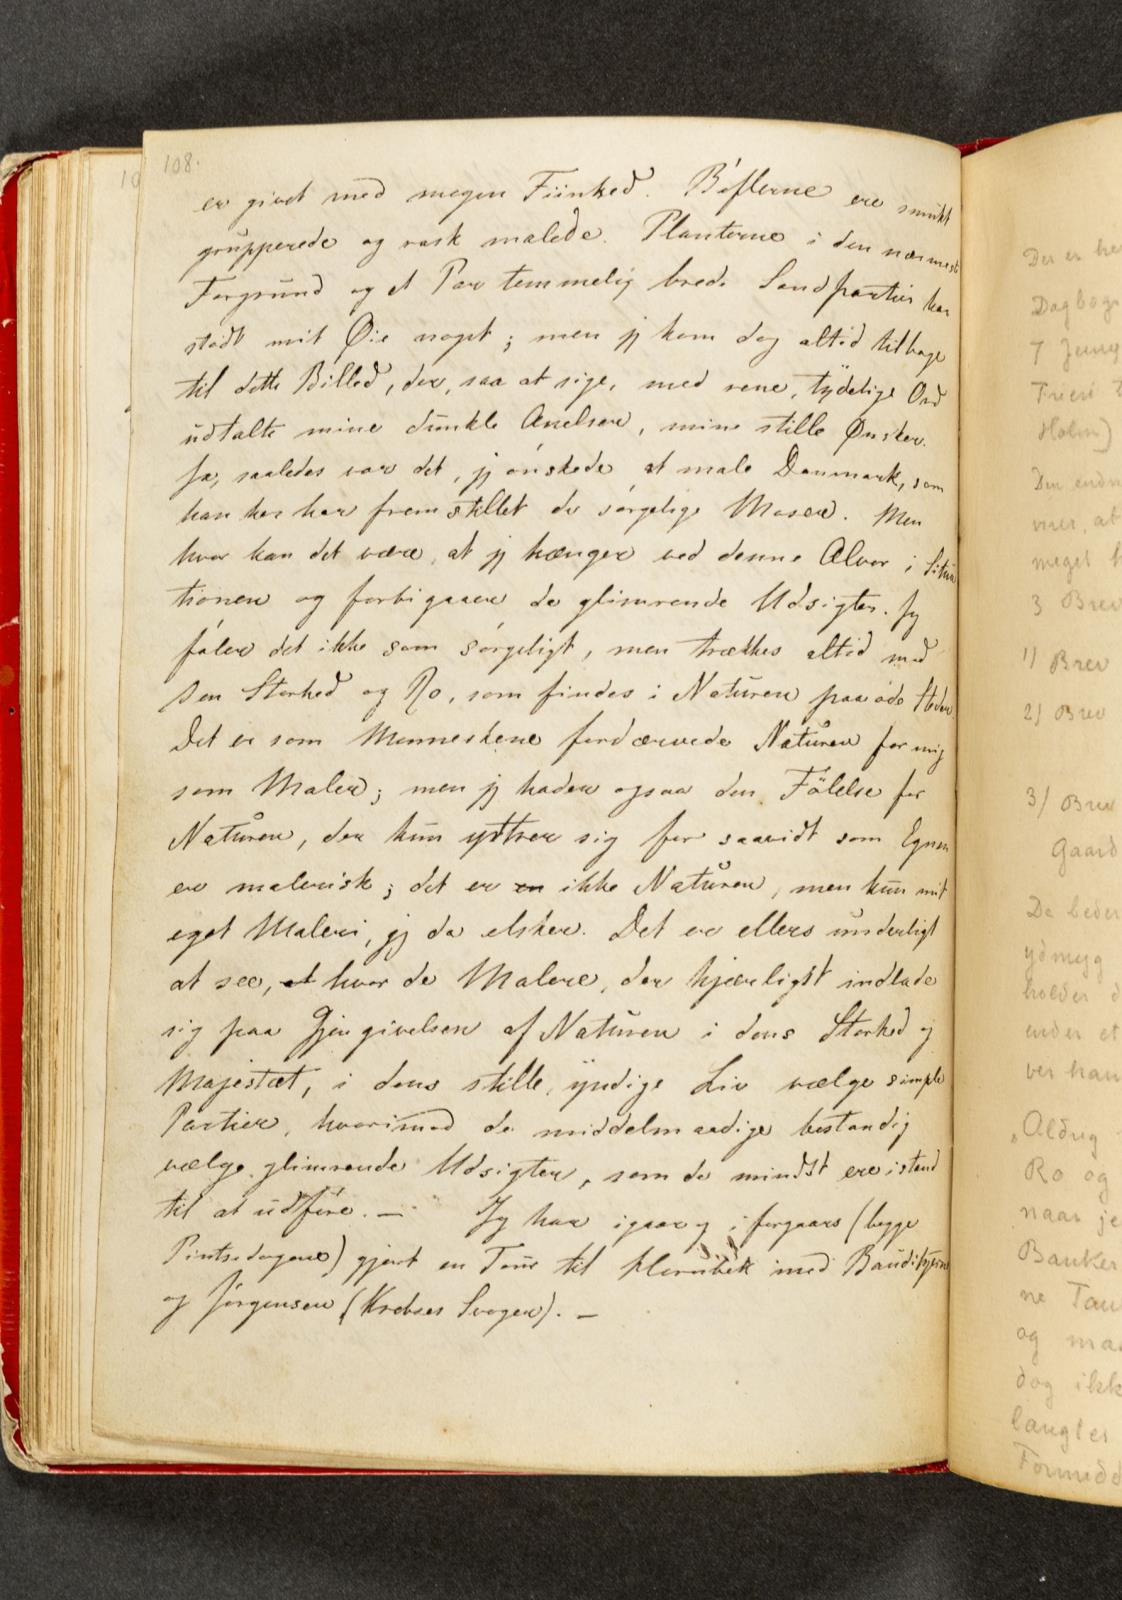 108.
er givet med megen Fiinhed. Böflerne ere smukt
grupperede og rask malede. Planterne i den nærmeste
Forgrund og et Par temmelig brede Sandpartier har
stödt mit Öie noget; men jeg kom dog altid tilbage
til dette Billed, der, saa at sige, med rene, tydelige Ord
udtalte mine dunkle Anelser, mine stille Önsker.
Ja, saaledes var det, jeg önskede at male Danmark, som
han her har fremstillet de sörgelige Moser. Men
hvor kan det være, at jeg hænger ved denne Alvor i Situa
tionen og forbigaaer de glimrende Udsigter. Jeg
föler det ikke som sörgeligt, men trækkes altid mod
den Storhed og Ro, som findes i Naturen paa öde Steder.
Det er som Menneskene fordærvede Naturen for mig
som Maler; men jeg hader ogsaa den Fölelse for
Naturen, der kun yttrer sig for saavidt som Egnen
er malerisk; det er en ikke Naturen, men kun mit
eget Maleri, jeg da elsker. Det er ellers underligt
at see, at hvor de Malere, der kjærligst indlade
sig paa Gjengivelsen af Naturen i dens Storhed og
Majestæt, i dens stille, yndige Liv vælge simple
Partier, hvorimod de middelmaadige bestandig
vælge glimrende Udsigter, som de mindst ere istand
til at udföre. — Jeg har igaar og iforgaars (begge
Pintsedagene) gjort en Tour til med
og Jörgensen (Krebses Svoger). —
10
Der er
Dagbogs
7
Frieri
Holm)
Den endn
mer, at
meget
3 Brev
1) Brev
2) Brev
3) Brev
Gaard
De beder
ydmyg
holder
under et
ver han
"Aldrig
Ro og
naar je
Banker
ne Tau
og maa
dog ikk
længtes
Formidd